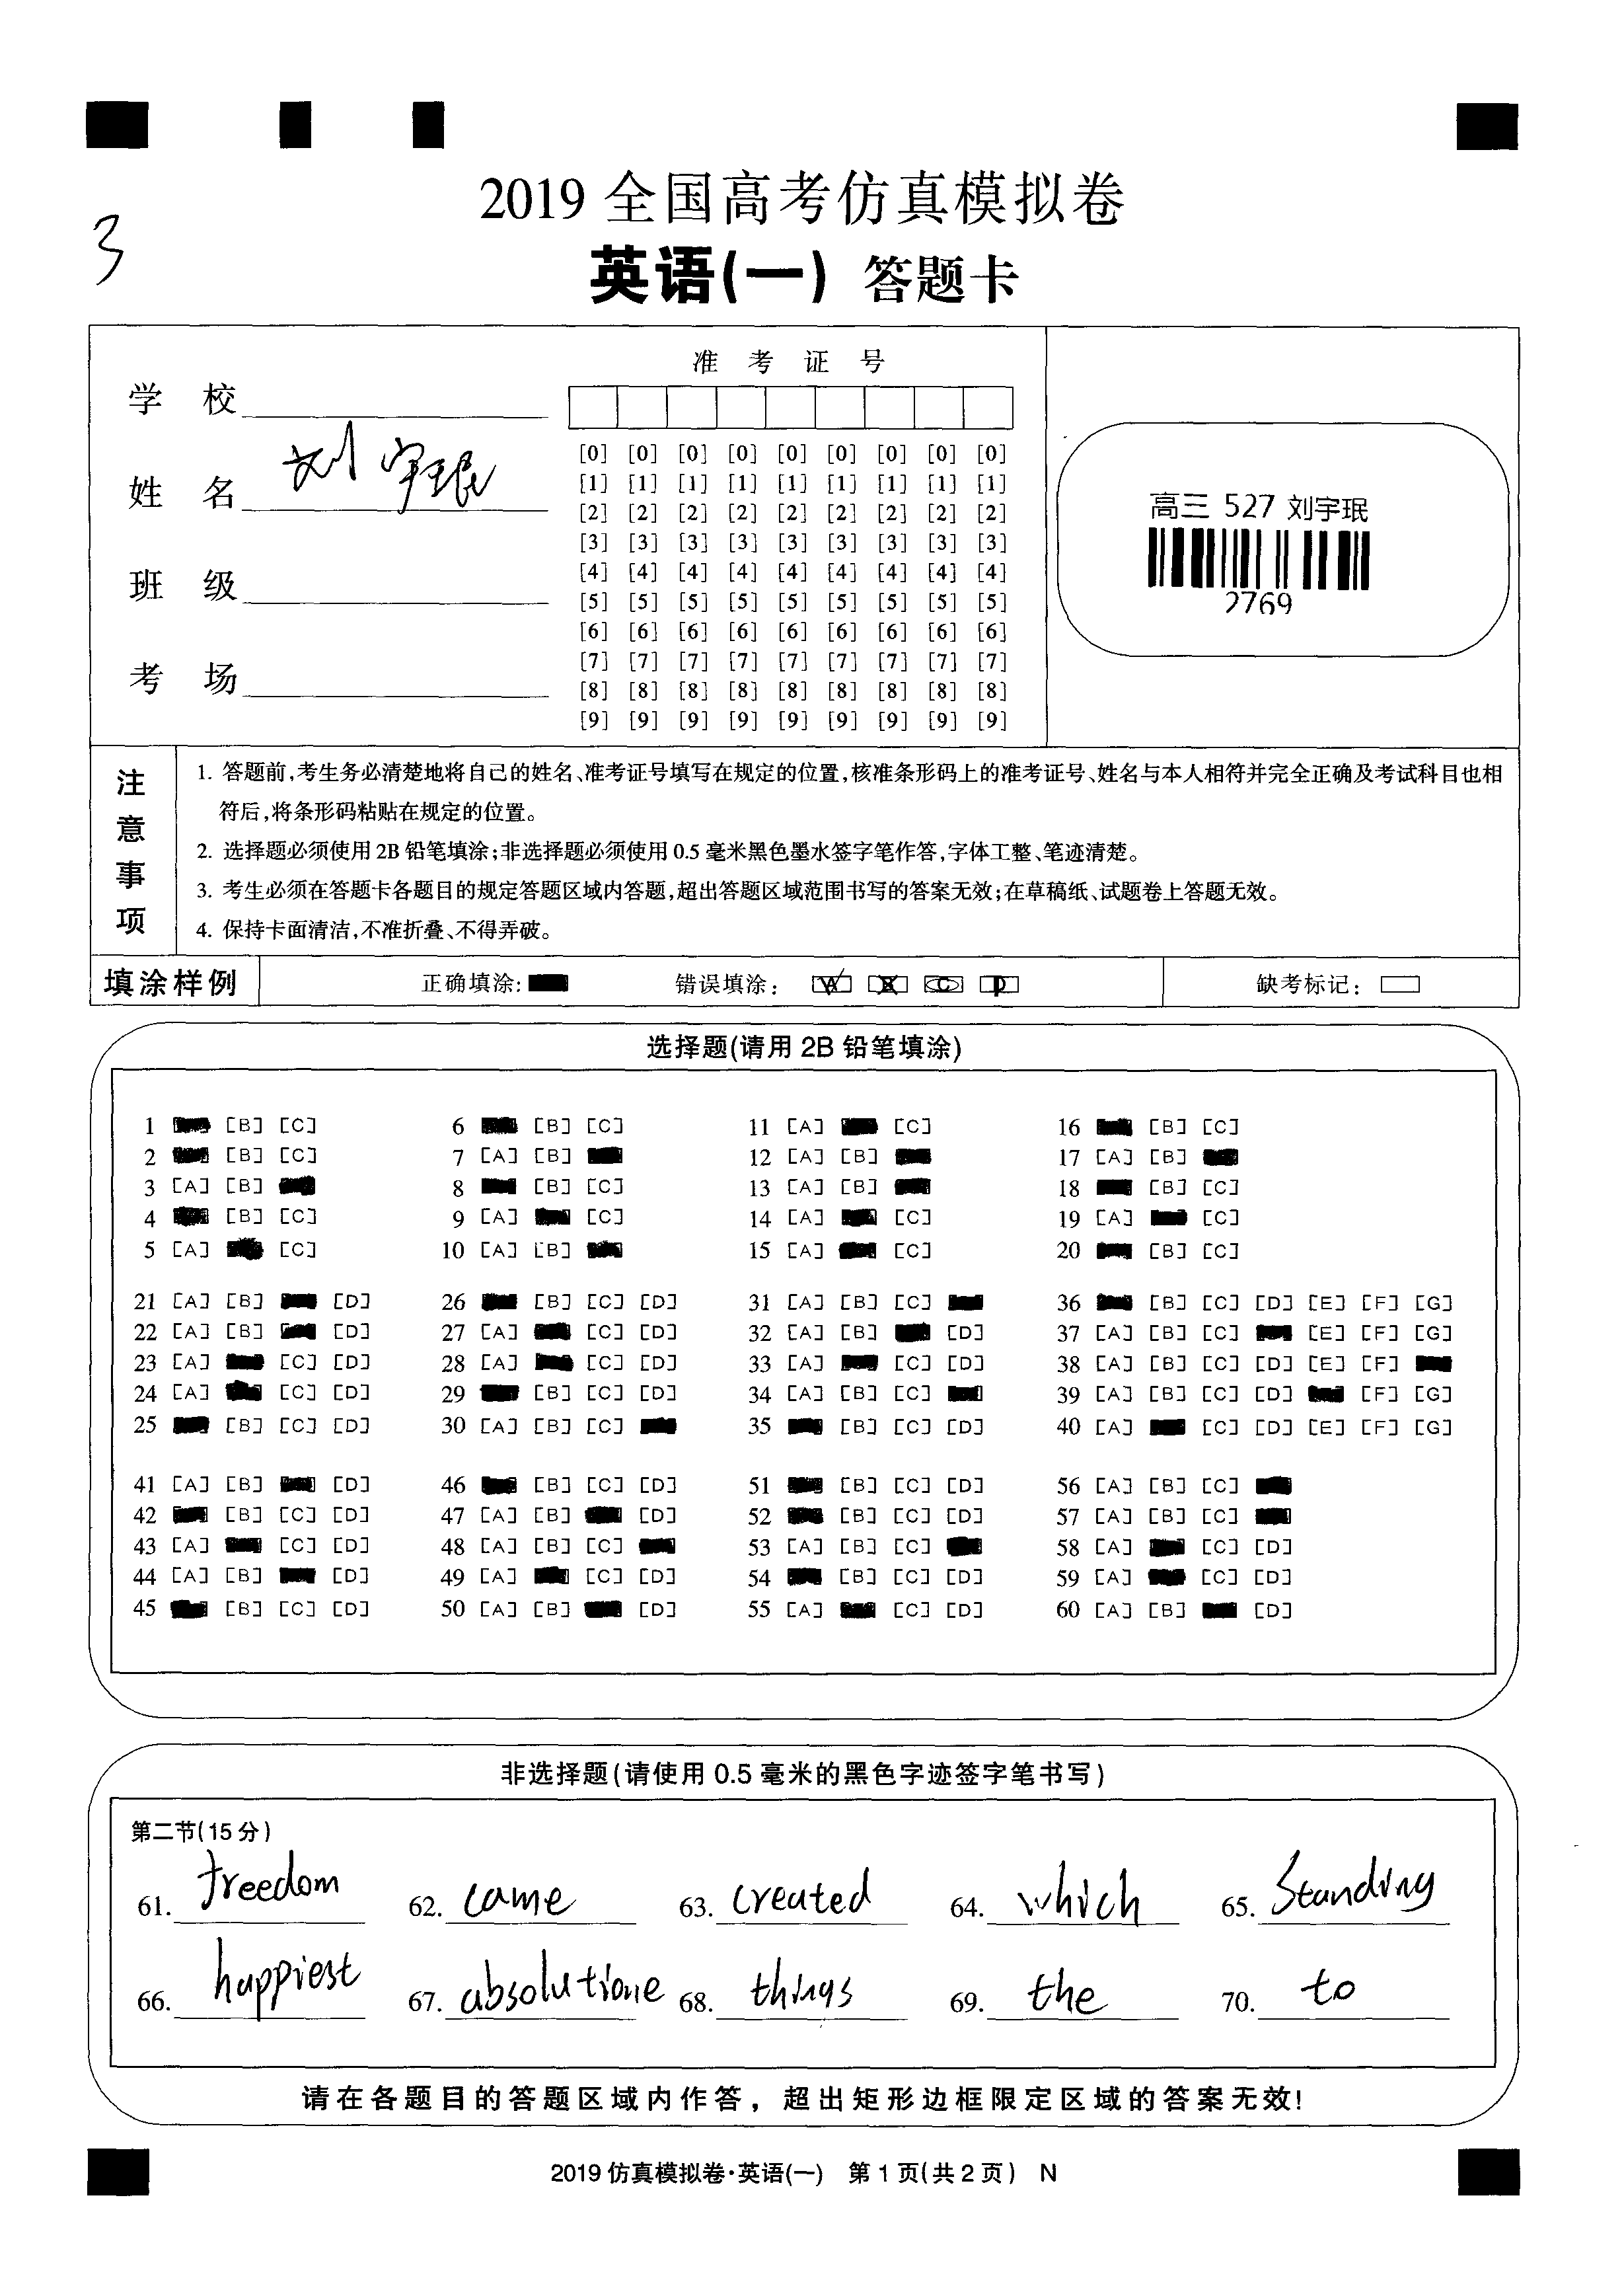 2019 全国高考仿真模拟卷
3
英语(一) 答题卡
准 考 证 号
学 校
姓 名 刘宇珉
班 级
考 场
[0] [0] [0] [0] [0] [0] [0] [0] [0]
[1] [1] [1] [1] [1] [1] [1] [1] [1]
[2] [2] [2] [2] [2] [2] [2] [2] [2]
[3] [3] [3] [3] [3] [3] [3] [3] [3]
[4] [4] [4] [4] [4] [4] [4] [4] [4]
[5] [5] [5] [5] [5] [5] [5] [5] [5]
[6] [6] [6] [6] [6] [6] [6] [6] [6]
[7] [7] [7] [7] [7] [7] [7] [7] [7]
[8] [8] [8] [8] [8] [8] [8] [8] [8]
[9] [9] [9] [9] [9] [9] [9] [9] [9]
高三 527 刘宇珉
2769
注意事项
1. 答题前,考生务必清楚地将自己的姓名、准考证号填写在规定的位置,核准条形码上的准考证号、姓名与本人相符并完全正确及考试科目也相
符后,将条形码粘贴在规定的位置。
2. 选择题必须使用2B铅笔填涂;非选择题必须使用0.5毫米黑色墨水签字笔作答,字体工整、笔迹清楚。
3. 考生必须在答题卡各题目的规定答题区域内答题,超出答题区域范围书写的答案无效;在草稿纸、试题卷上答题无效。
4. 保持卡面清洁,不准折叠、不得弄破。
填涂样例 正确填涂: 错误填涂: A B C D 缺考标记:
选择题(请用2B铅笔填涂)
1 [B] [C] 6 [B] [C] 11 [A] [C] 16 [B] [C]
2 [B] [C] 7 [A] [B] 12 [A] [B] 17 [A] [B]
3 [A] [B] 8 [B] [C] 13 [A] [B] 18 [B] [C]
4 [B] [C] 9 [A] [C] 14 [A] [C] 19 [A] [C]
5 [A] [C] 10 [A] [B] 15 [A] [C] 20 [B] [C]
21 [A] [B] [D] 26 [B] [C] [D] 31 [A] [B] [C] 36 [B] [C] [D] [E] [F] [G]
22 [A] [B] [D] 27 [A] [C] [D] 32 [A] [B] [D] 37 [A] [B] [C] [E] [F] [G]
23 [A] [C] [D] 28 [A] [C] [D] 33 [A] [C] [D] 38 [A] [B] [C] [D] [E] [F]
24 [A] [C] [D] 29 [B] [C] [D] 34 [A] [B] [C] 39 [A] [B] [C] [D] [F] [G]
25 [B] [C] [D] 30 [A] [B] [C] 35 [B] [C] [D] 40 [A] [C] [D] [E] [F] [G]
41 [A] [B] [D] 46 [B] [C] [D] 51 [B] [C] [D] 56 [A] [B] [C]
42 [B] [C] [D] 47 [A] [B] [D] 52 [B] [C] [D] 57 [A] [B] [C]
43 [A] [C] [D] 48 [A] [B] [C] 53 [A] [B] [C] 58 [A] [C] [D]
44 [A] [B] [D] 49 [A] [C] [D] 54 [B] [C] [D] 59 [A] [C] [D]
45 [B] [C] [D] 50 [A] [B] [D] 55 [A] [C] [D] 60 [A] [B] [D]
非选择题(请使用0.5毫米的黑色字迹签字笔书写)
第二节(15分)
61. freedom 62. came 63. created 64. which 65. Standing
66. happiest 67. absolutione 68. things 69. the 70. to
请在各题目的答题区域内作答，超出矩形边框限定区域的答案无效!
2019仿真模拟卷·英语(一) 第1页(共2页) N